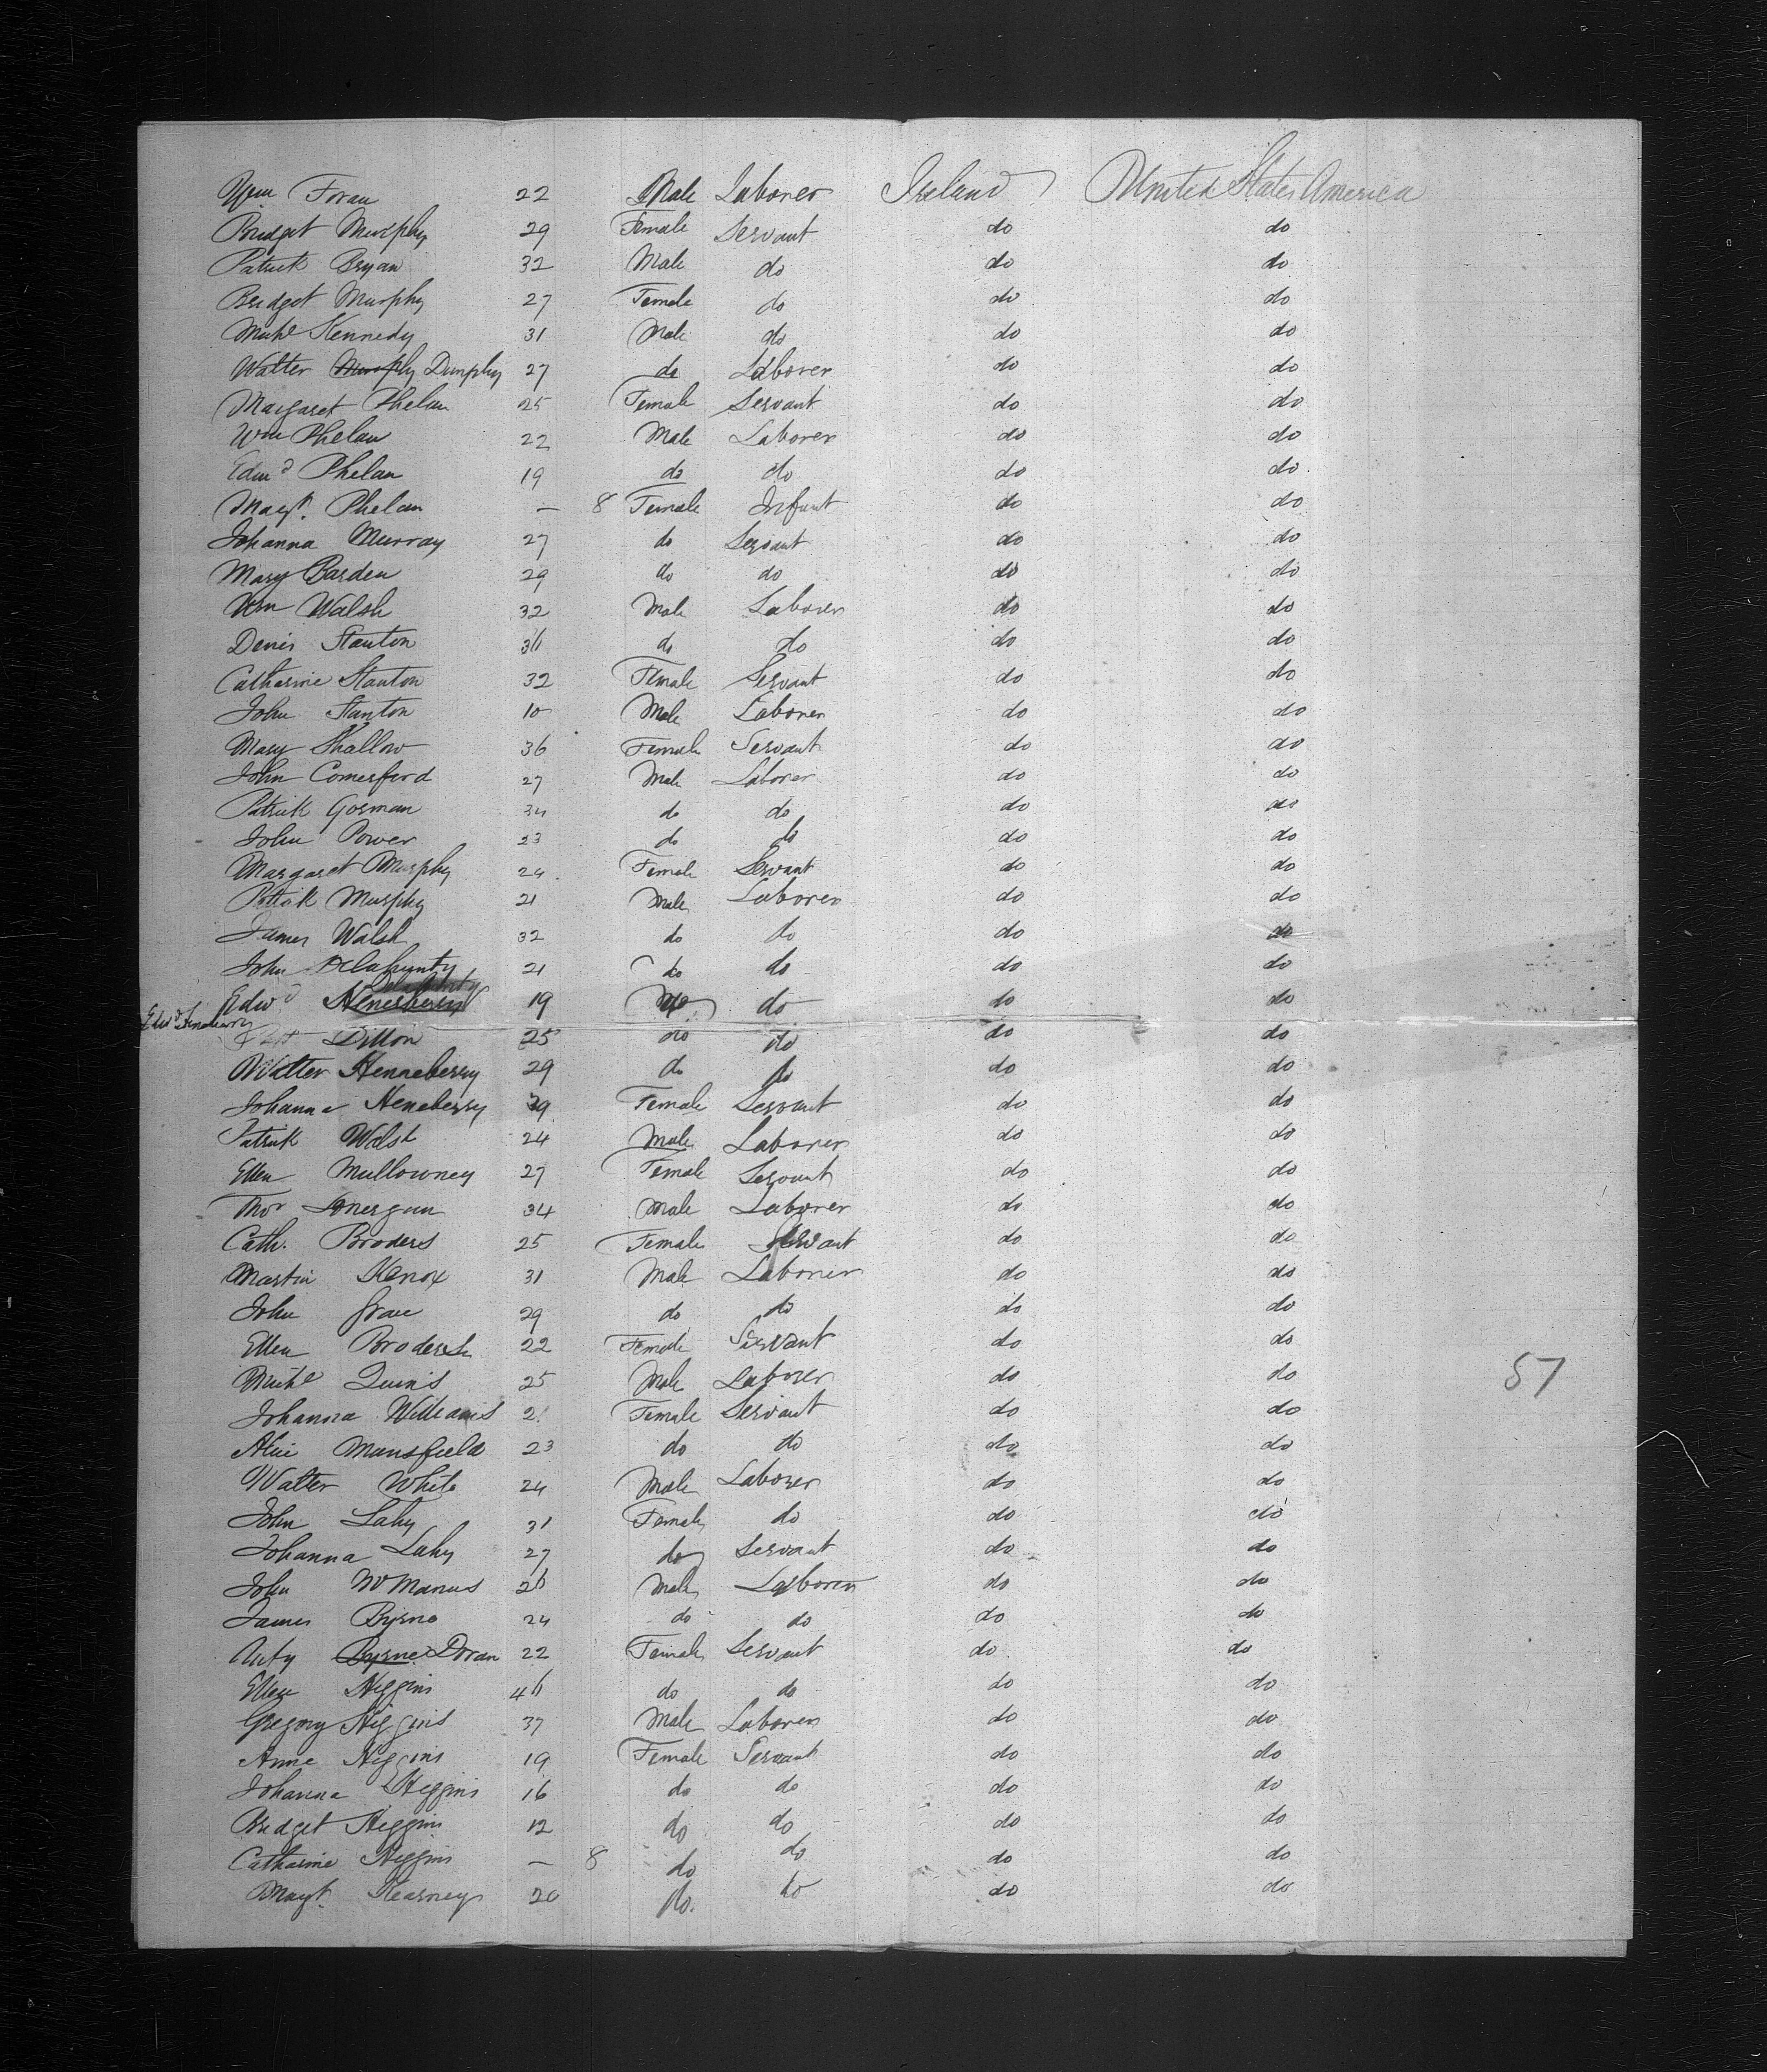 Wm Foran 22 Male Laborer Ireland United States America
Bridget Murphy 29 Female Servant do do
Patrick Bryan 32 Male do do do
Bridget Murphy 27 Female do do do
Michl Kennedy 31 Male do do do
Walter Murphy Dunphy 27 do Laborer do do
Margaret Phelan 25 Female Servant do do
Wm Phelan 22 Male Laborer do do
Edwd Phelan 19 do do do do
Magt. Phelan — 8 Female Infant do do
Johanna Murray 27 do Servant do do
Mary Barden 29 do do do do
Wm Walsh 32 Male Laborer do do
Denis Stanton 36 do do do do
Catharine Stanton 32 Female Servant do do
John Stanton 10 Male Laborer do do
Mary Shallow 36 Female Servant do do
John Comerford 27 Male Laborer do do
Patrick Gorman 34 do do do do
John Power 23 do do do do
Margaret Murphy 24 Female Servant do do
Patrick Murphy 21 Male Laborer do do
James Walsh 32 do do do do
John Delahunty 21 do do do do
Edwd Heneberry Delahunty 19 do do do
Edwd Heneberry
Dillon 25 do do do do
Walter Henneberry 29 do do do do
Johanna Heneberry 29 Female Servant do do
Patrick Walsh 24 Male Laborer do do
Ellen Mullowney 27 Female Servant do do
Thos Lonergan 34 Male Laborer do do
Cath. Broders 25 Female Servant do do
Martin Knox 31 Male Laborer do do
John Grace 29 do do do do
Ellen Broderick 22 Female Servant do do
Michl Quin 25 Male Laborer do do
Johanna Williams Female Servant do do
Alice Mansfield 23 do do do do
Walter White 24 Male Laborer do do
John Lahy 31 Female do do do
Johanna Lahy 27 do Servant do do
John McManus 26 Male Laborer do do
James Byrne 24 do do do do
Byrne Doran 22 Female Servant do do
Ellen Higgins 46 do do do do
Gregory Higgins 37 Male Laborer do do
Anne Higgins 19 Female Servant do do
Johanna Higgins 16 do do do do
Bridget Higgins 12 do do do do
Catharine Higgins — 8 do do do do
Magt. Kearney 20 do. do do do
57